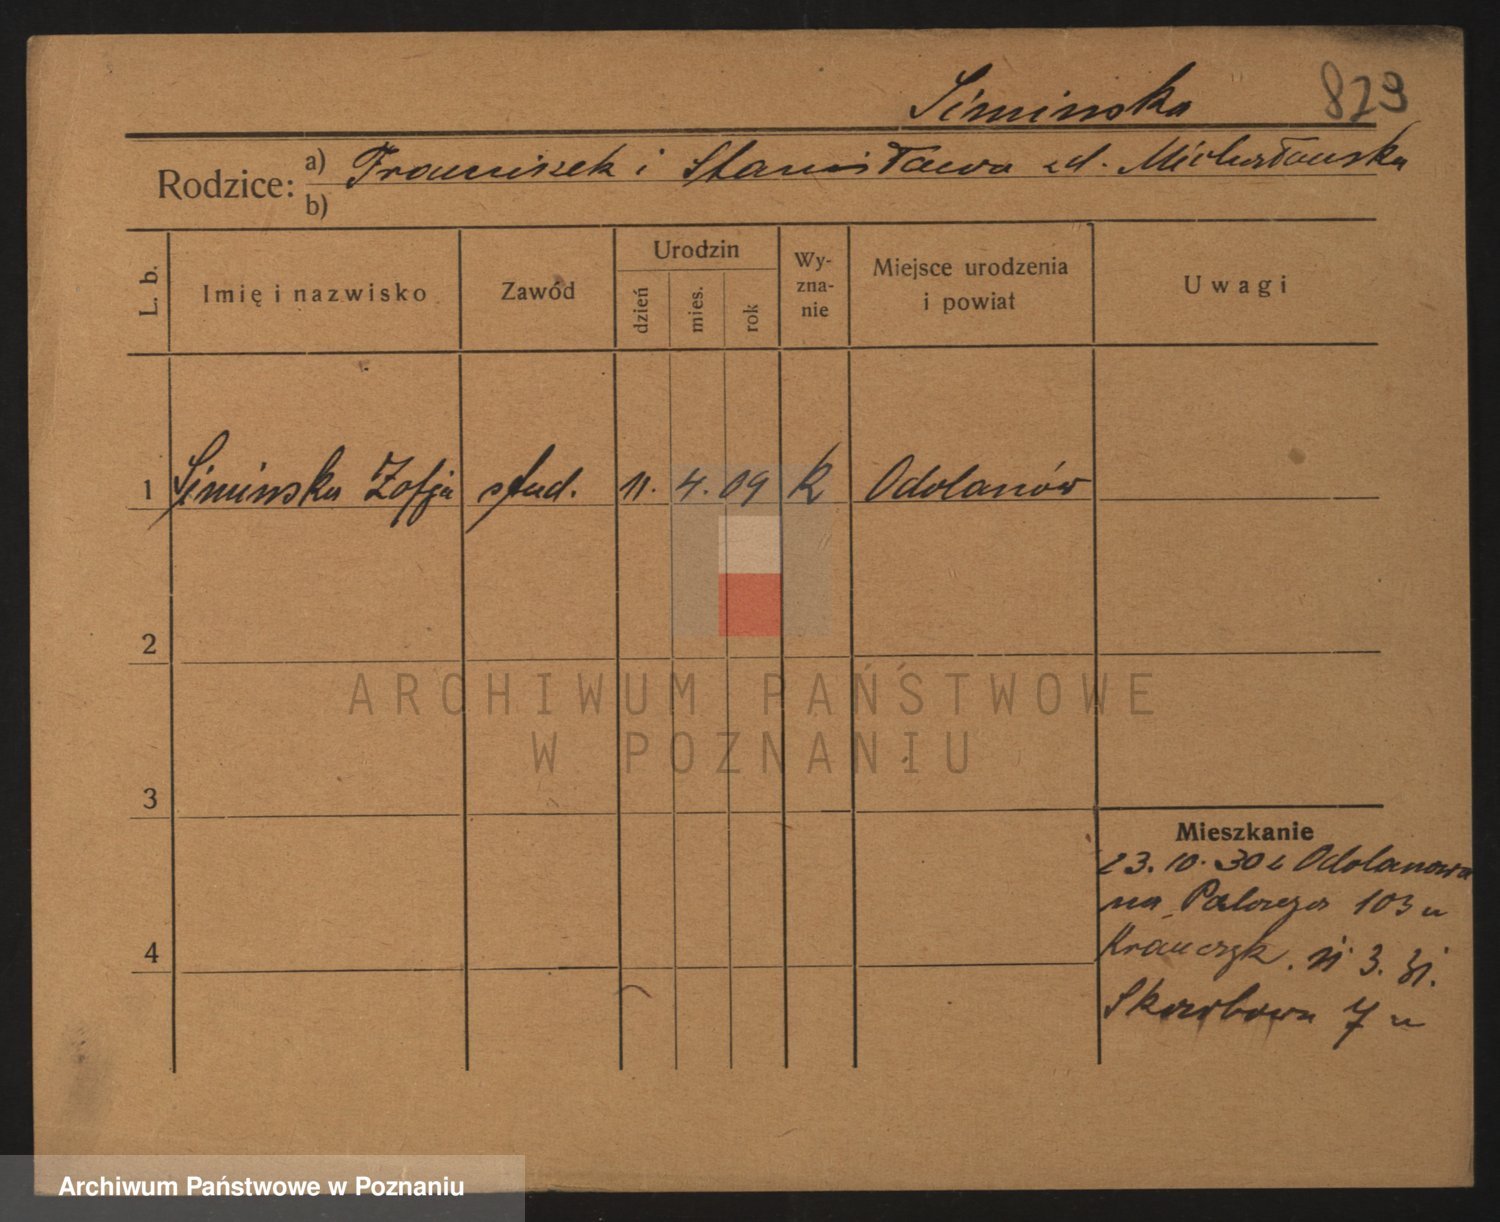 Siminska 823
Rodzice: a) Franciszek i Stanisława zd.
b)
L. b.
Imię i nazwisko
Zawód
Urodzin
dzień
mies.
rok
Wy-
zna-
nie
Miejsce urodzenia
i powiat
Uwagi
1 Siminska Zofja stud. 11. 4. 09 k Odolanów
2
3
4
Mieszkanie
23.10.30 z Odolanowa
na 103 u
Krawczyk. 3. 31.
Skarbowa 7 u
ARCHIWUM PAŃSTWOWE
W POZNANIU
Archiwum Państwowe w Poznaniu